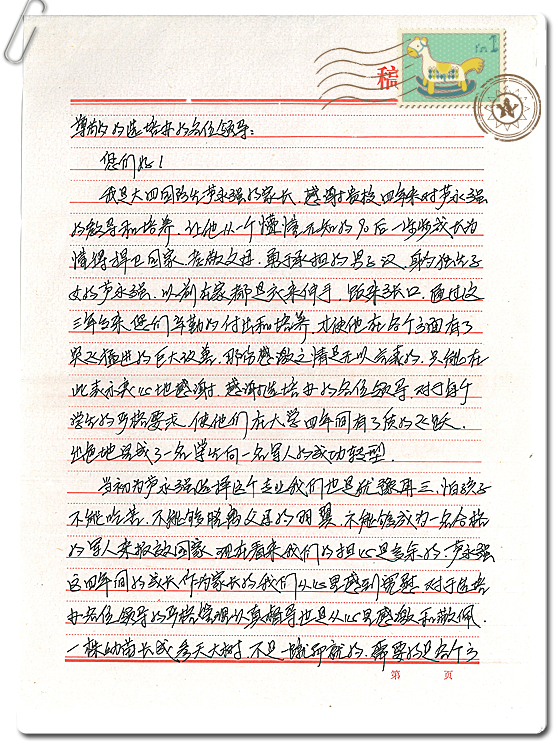 稿
1
尊敬的选培办的各位领导：
您们好！
我是大四国防生芦永强的家长，感谢贵校四年来对芦永强
的教导和培养，让他从一个懵懂无知的90后一步步成长为
懂得捍卫国家、孝敬父母、勇于承担的男子汉，身为独生子
女的芦永强，以前在家都是衣来伸手，饭来张口，通过这
三年多来您们辛勤的付出和培养，才使他在各个方面有了
突飞猛进的巨大改善，那份感激之情是无以言表的，只能在
此表示衷心地感谢，感谢选培办的各位领导对于每个
学生的严格要求，使他们在大学四年间有了质的飞跃，
出色地完成了一名学生向一名军人的成功转型。
当初为芦永强选择这个专业我们也是犹豫再三，怕孩子
不能吃苦，不能够脱离父母的羽翼，不能够成为一名合格
的军人来报效国家，现在看来我们的担心是多余的，芦永强
这四年间的成长作为家长的我们从心里感到宽慰，对于选培
办各位领导的严格管理认真领导也是从心里感激和敬佩，
一株幼苗长成参天大树，不是一蹴即就的，需要的是各个方
第 页